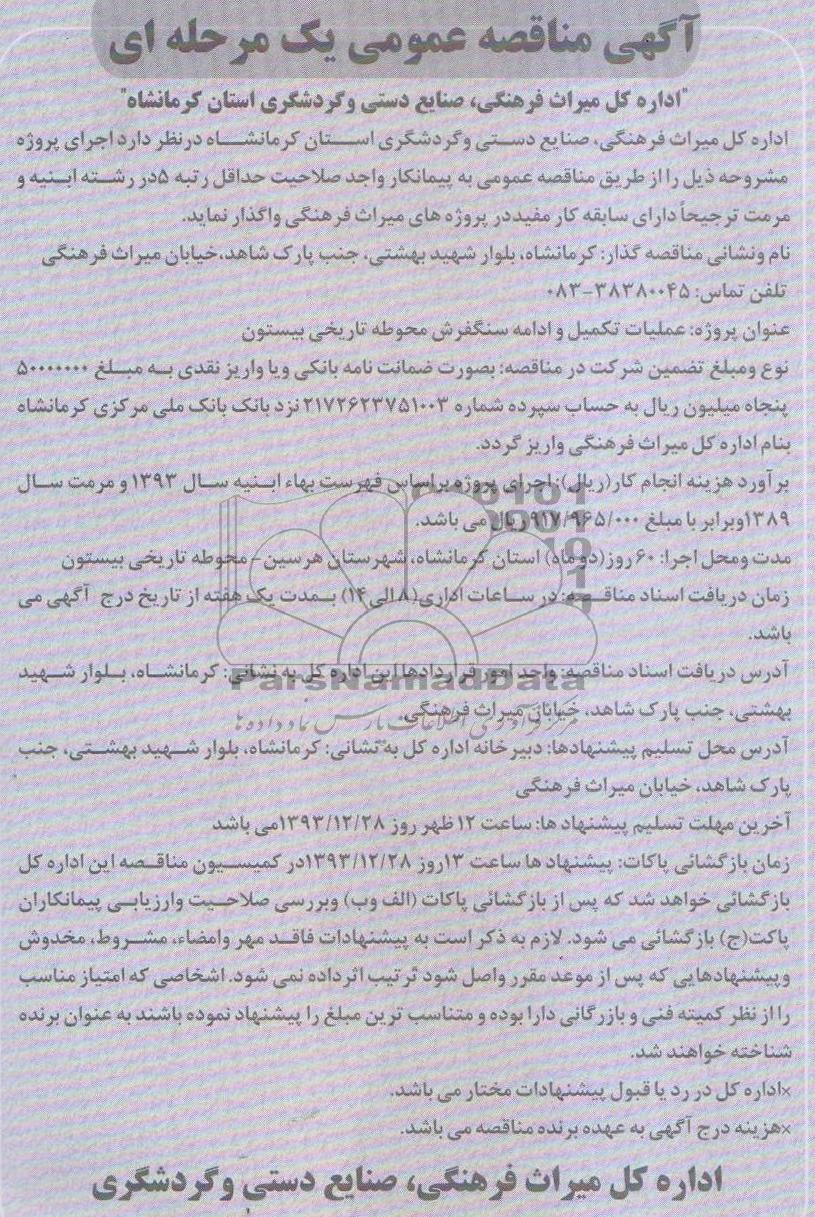 آگهی مناقصه عمومی یک مرحله ای
"اداره کل میراث فرهنگی، صنایع دستی وگردشگری استان کرمانشاه"
اداره کل میراث فرهنگی، صنایع دستی وگردشگری استان کرمانشاه درنظر دارد اجرای پروژه
مشروحه ذیل را از طریق مناقصه عمومی به پیمانکار واجد صلاحیت حداقل رتبه ۵در رشته ابنیه و
مرمت ترجیحاً دارای سابقه کار مفیددر پروژه های میراث فرهنگی واگذار نماید.
نام ونشانی مناقصه گذار: کرمانشاه، بلوار شهید بهشتی، جنب پارک شاهد،خیابان میراث فرهنگی
تلفن تماس: ۳۸۳۸۰۰۴۵-۰۸۳
عنوان پروژه: عملیات تکمیل و ادامه سنگفرش محوطه تاریخی بیستون
نوع ومبلغ تضمین شرکت در مناقصه: بصورت ضمانت نامه بانکی ویا واریز نقدی به مبلغ ۵۰۰۰۰۰۰۰
پنجاه میلیون ریال به حساب سپرده شماره ۲۱۷۲۶۲۳۷۵۱۰۰۳ نزد بانک بانک ملی مرکزی کرمانشاه
بنام اداره کل میراث فرهنگی واریز گردد.
برآورد هزینه انجام کار(ریال): اجرای پروژه براساس فهرست بهاء ابنیه سال ۱۳۹۳ و مرمت سال
۱۳۸۹وبرابر با مبلغ ۹۱۷/۹۶۵/۰۰۰ ریال می باشد.
مدت ومحل اجرا: ۶۰ روز(دو ماه) استان کرمانشاه، شهرستان هرسین- محوطه تاریخی بیستون
زمان دریافت اسناد مناقصه: در ساعات اداری(۸ الی۱۴) بمدت یک هفته از تاریخ درج آگهی می
باشد.
آدرس دریافت اسناد مناقصه: واحد امور قراردادها این اداره کل به نشانی: کرمانشاه، بلوار شهید
ParsNamadData
بهشتی، جنب پارک شاهد، خیابان میراث فرهنگی.
مرکز فرآوری اطلاعات پارس نماد داده ها
آدرس محل تسلیم پیشنهادها: دبیرخانه اداره کل به نشانی: کرمانشاه، بلوار شهید بهشتی، جنب
پارک شاهد، خیابان میراث فرهنگی
آخرین مهلت تسلیم پیشنهاد ها: ساعت ۱۲ ظهر روز ۱۳۹۳/۱۲/۲۸می باشد
زمان بازگشائی پاکات: پیشنهاد ها ساعت ۱۳روز ۱۳۹۳/۱۲/۲۸در کمیسیون مناقصه این اداره کل
بازگشائی خواهد شد که پس از بازگشائی پاکات (الف وب) وبررسی صلاحیت وارزیابی پیمانکاران
پاکت(ج) بازگشائی می شود. لازم به ذکر است به پیشنهادات فاقد مهر وامضاء، مشروط، مخدوش
وپیشنهادهایی که پس از موعد مقرر واصل شود ترتیب اثرداده نمی شود. اشخاصی که امتیاز مناسب
را از نظر کمیته فنی و بازرگانی دارا بوده و متناسب ترین مبلغ را پیشنهاد نموده باشند به عنوان برنده
شناخته خواهند شد.
×اداره کل در رد یا قبول پیشنهادات مختار می باشد.
×هزینه درج آگهی به عهده برنده مناقصه می باشد.
اداره کل میراث فرهنگی، صنایع دستی وگردشگری